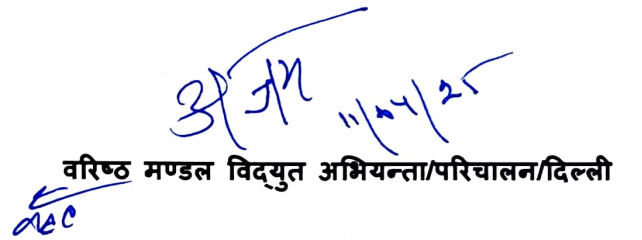 11/04/25
वरिष्ठ मण्डल विद्युत अभियन्ता/परिचालन/दिल्ली